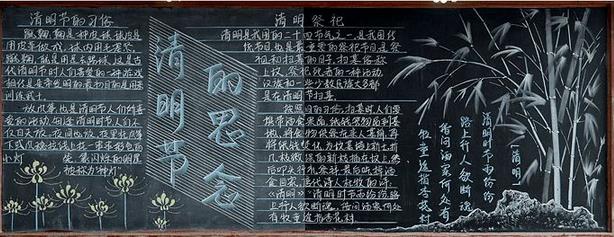 清明节的习俗
蹴鞠,鞠是一种皮球,球皮是
用皮革做成,球内用毛塞紧。
蹴鞠,就是用足去踢球,这是古
代清明节时人们喜爱的一种游戏
相传是皇帝发明的最初目的是用来
训练武士。
放风筝也是清明节人们所喜
爱的活动。每逢清明节人们不
仅白天放,夜间也放。夜里在风筝
下或风稳拉线上挂一串串彩色的
小灯 笼,象闪烁的明星
被称为“神灯”
清明节
的思念
清明祭祀
清明是我国的二十四节气之一,是我国传
统节日也是最重要的祭祀节日,是祭
祖和扫墓的日子。扫墓俗称
上坟,祭祀死者的一种活动
汉族和一些少数民族大多都
是在清明节扫墓。
按照旧的习俗,扫墓时人们要
携带酒食果品,纸钱等物品到墓
地,将食物供祭在亲人墓前,再
将纸钱焚化,为坟墓培上新土折
几枝嫩绿的新枝插在坟上,然
后叩头行礼祭拜最后吃掉酒
食回家,唐代诗人杜牧的诗,
《清明》“清明时节雨纷纷路
上行人欲断魂,借问酒家何处
有牧童遥指杏花村。
[清明]
清明时节雨纷纷
路上行人欲断魂
借问酒家何处有
牧童遥指杏花村